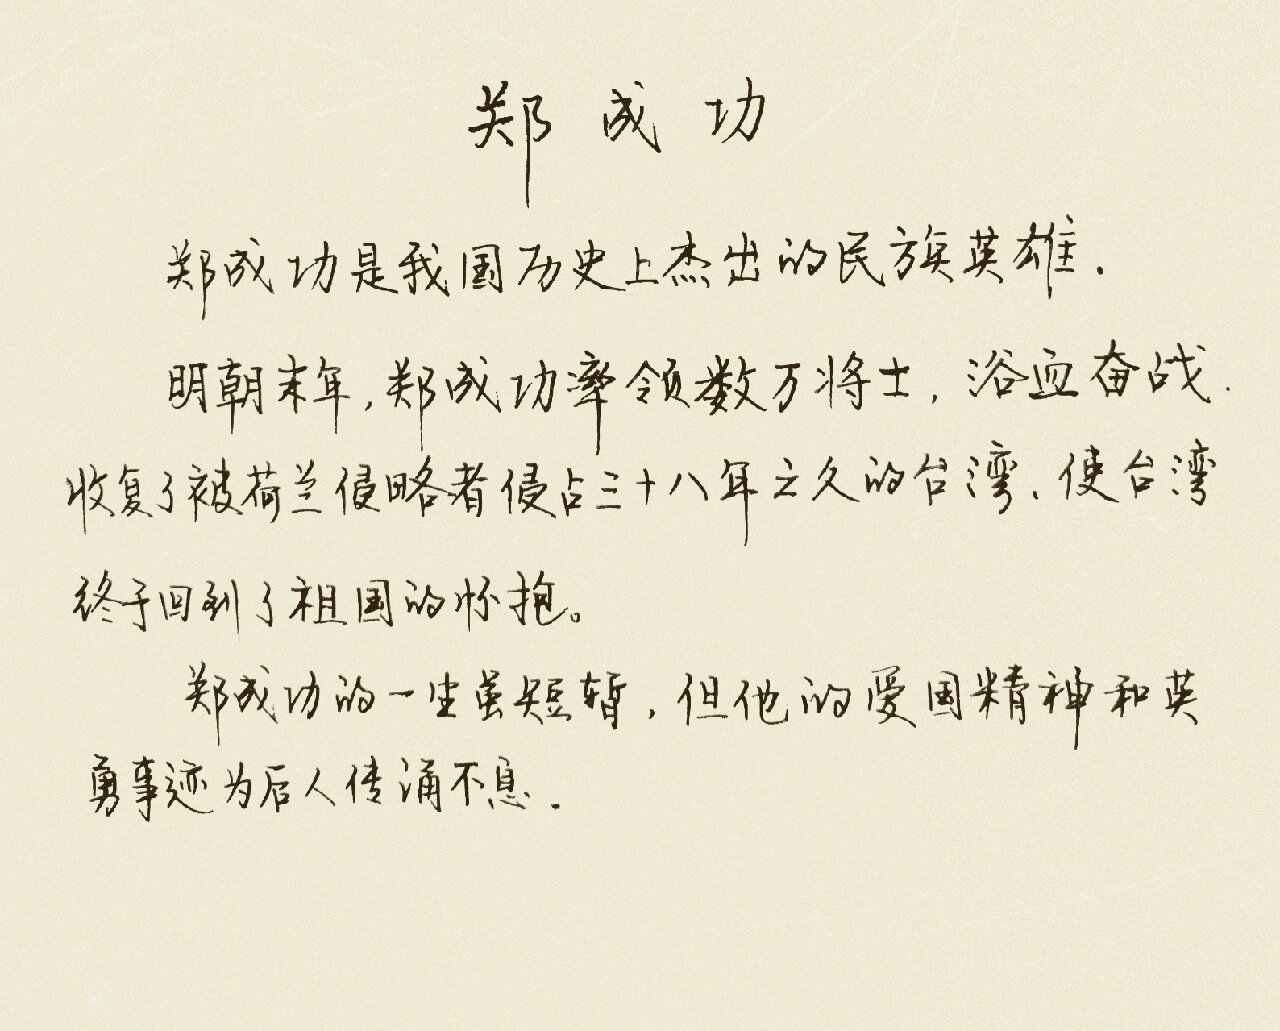 郑成功
郑成功是我国历史上杰出的民族英雄.
明朝末年,郑成功率领数万将士,浴血奋战.
收复了被荷兰侵略者侵占三十八年之久的台湾,使台湾
终于回到了祖国的怀抱。
郑成功的一生虽短暂,但他的爱国精神和英
勇事迹为后人传涌不息.